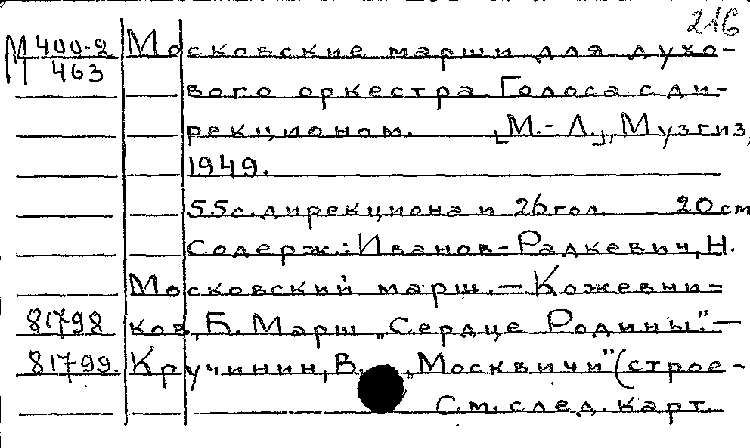 216
М 400-2 Московские марши для духо-
463 вого оркестра. Голоса с ди-
рекционом. [М.-Л.], Музгиз,
1949.
55с. дирекциона и 26гол. 20 см
Содерж.: Иванов-Радкевич, Н.
Московский марш. — Кожевни-
81798 ков, Б. Марш „Сердце Родины". —
81799. Кручинин, В. „Москвичи" (строе-
См. след. карт.